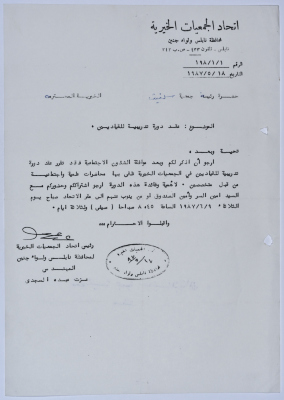 اتحاد الجمعيات الخيرية
محافظة نابلس ولواء جنين
نابلس - تلفون ٩٢٣ - ص.ب ٢١٢
الرقم ١٩٨/١/١
التاريخ ١٩٨٧/٥/١٨
حضرة رئيسة جمعية المحترمة
الموضوع : عقد دورة تدريبية للقياديين .
تحية وبعد
ارجو أن اذكر لكم وبعد موافقة الشئون الاجتماعية فقد تقرر عقد دورة
تدريبية للقياديين في الجمعيات الخيرية محاضرات واجتماعية
من قبل مختصين . لأهمية وفائدة هذه الدورة ارجو اشتراككم وحضوركم مع
السيد امين السر وأمين الصندوق او من ينوب عنهم الى مقر الاتحاد صباح يوم
الثلاثاء ١٩٨٧/٦/٩ الساعة ٨،٤٥ صباحا ( صيفي ) ولثلاثة ايام .
واقبلوا الاحترام
رئيس اتحاد الجمعيات الخيرية
لمحافظة نابلس ولواء جنين
المهندس